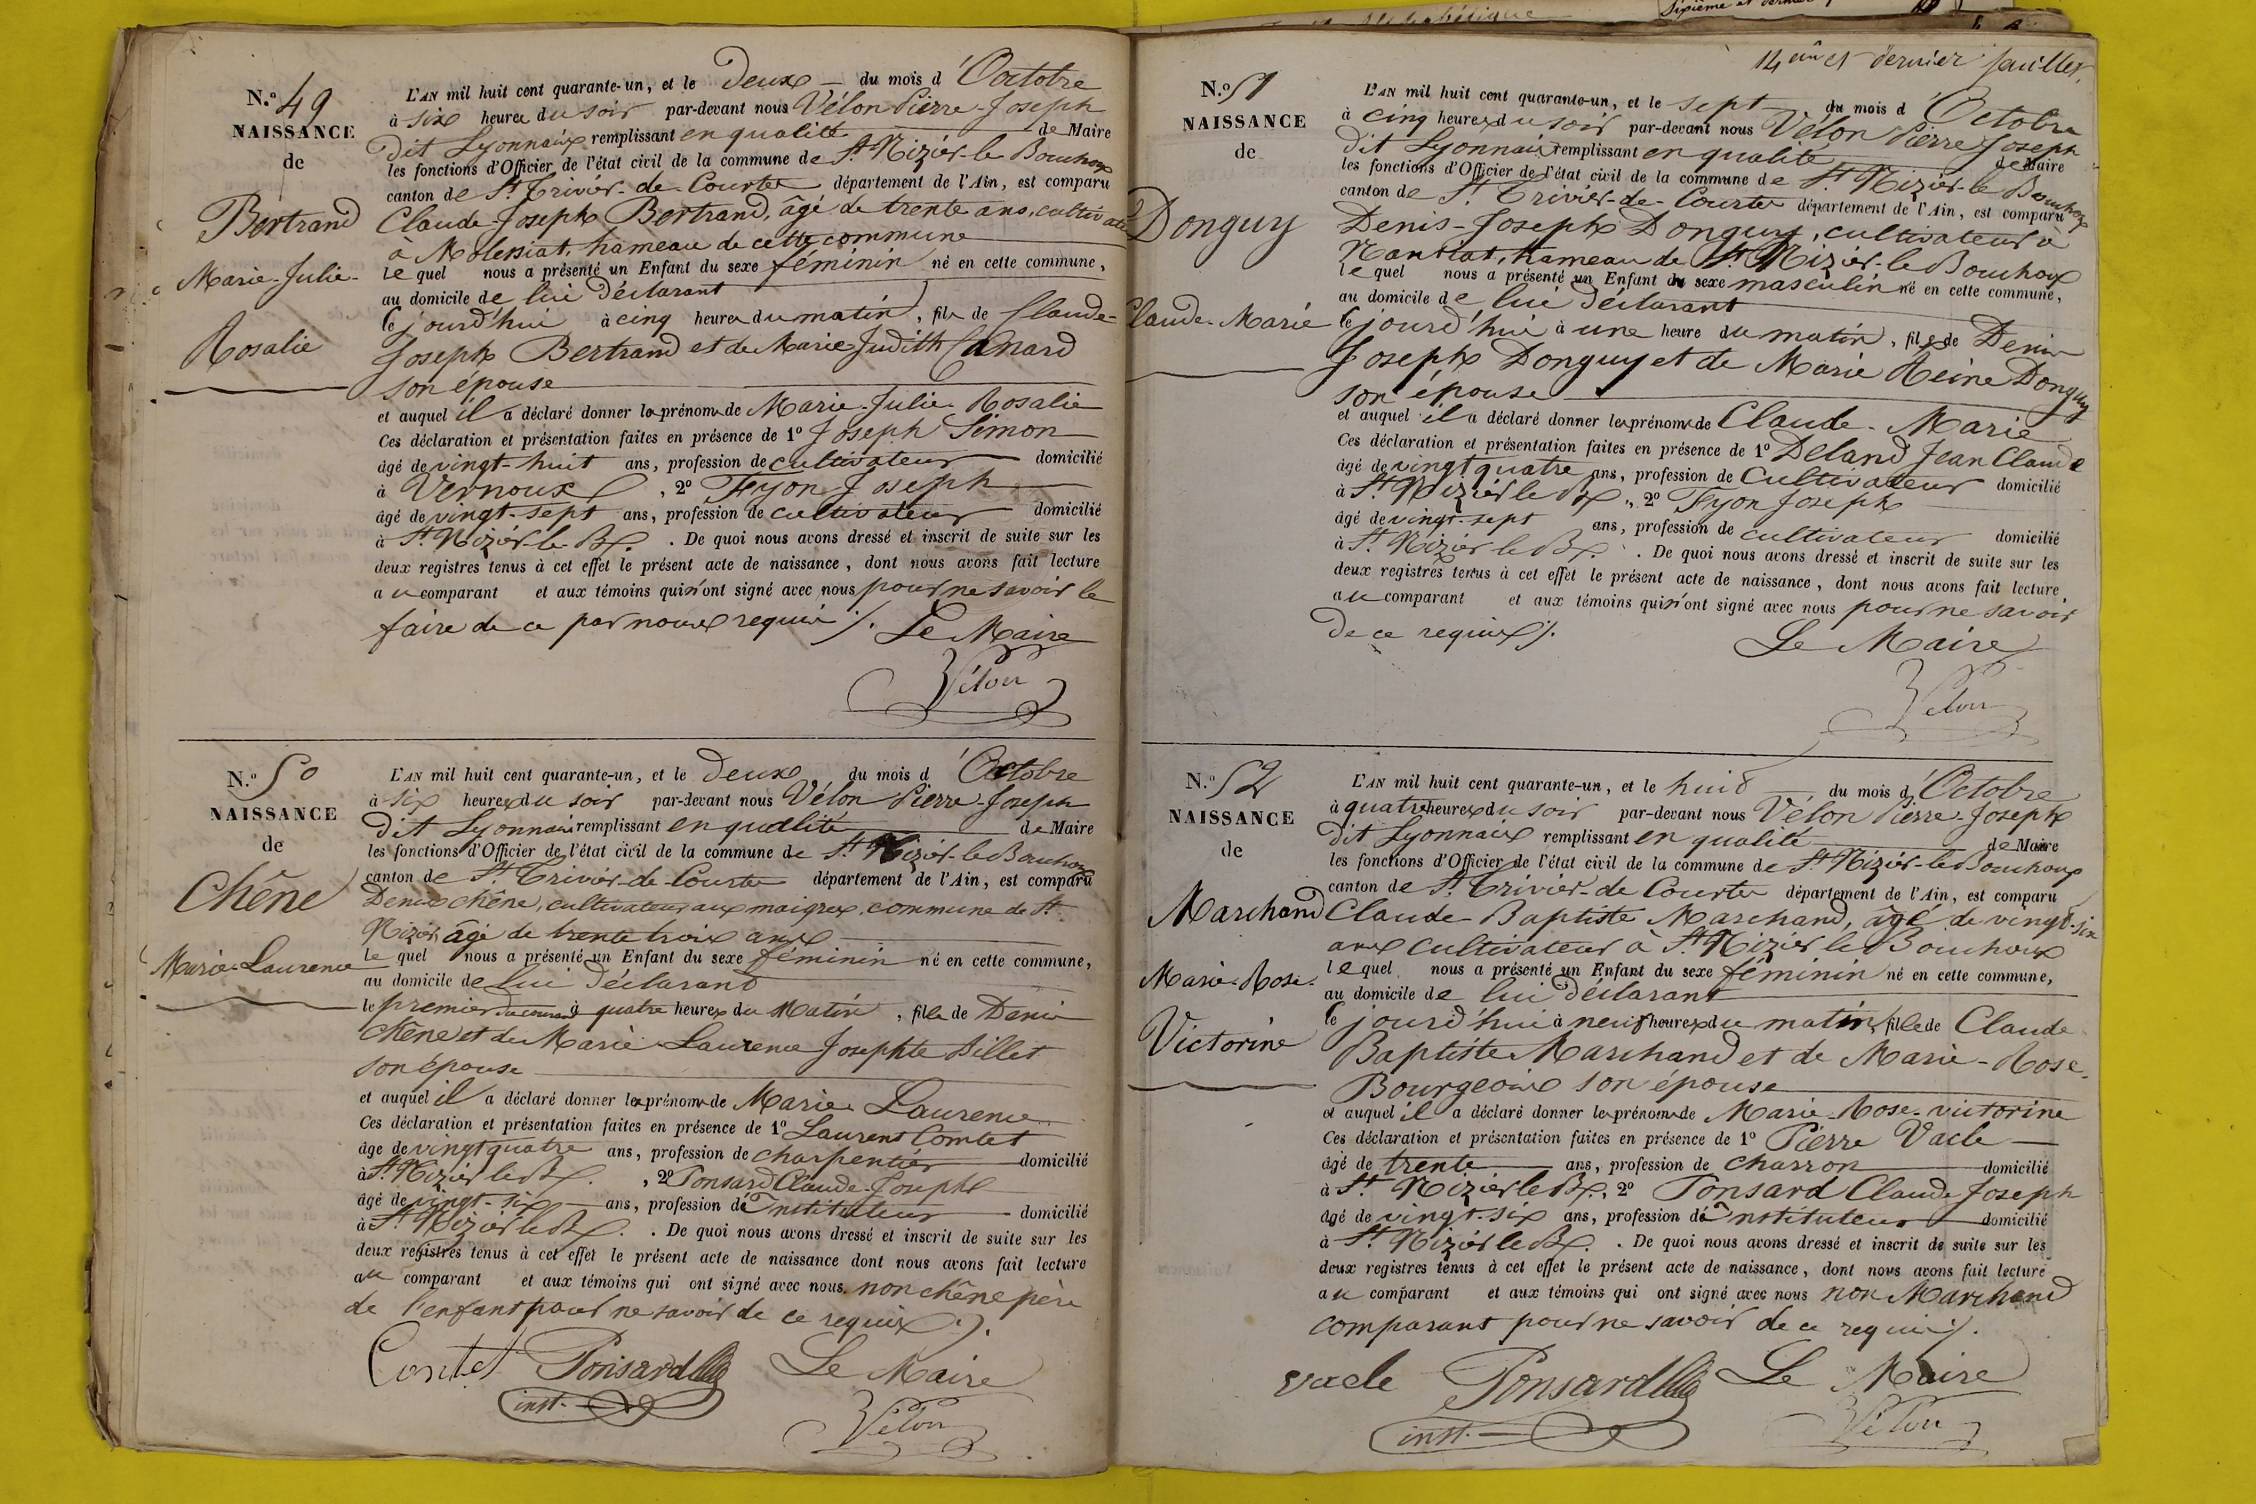 N.º 49
NAISSANCE
de
Bertrand
Marie-Julie-
Rosalie
L'AN mil huit cent quarante-un, et le Deux du mois d'Octobre
à six heures du soir par-devant nous Vélon Pierre-Joseph
dit Lyonnais remplissant en qualité de Maire
les fonctions d'Officier de l'état civil de la commune de St. Nizier-le Bouchoux
canton de St. Trivier-de-Courtes département de l'Ain, est comparu
Claude-Joseph Bertrand, âgé de trente ans, cultivateur
à Molessiat, hameau de cette commune
lequel nous a présenté un Enfant du sexe féminin né en cette commune,
au domicile de lui déclarant
ce jourd'hui à cinq heures du matin, fille de Claude-
Joseph Bertrand et de Marie Judith Canard
son épouse
et auquel il a déclaré donner les prénoms de Marie-Julie-Rosalie
Ces déclaration et présentation faites en présence de 1º Joseph Simon
âgé de vingt-huit ans, profession de cultivateur domicilié
à Vernoux, 2º Fyon Joseph
âgé de vingt-sept ans, profession de cultivateur domicilié
à St. Nizier-le-Bx. . De quoi nous avons dressé et inscrit de suite sur les
deux registres tenus à cet effet le présent acte de naissance, dont nous avons fait lecture
au comparant et aux témoins qui n'ont signé avec nous pour ne savoir le
faire de ce par nous requis ./. Le Maire
Vélon
N.º 50
NAISSANCE
de
Chêne
Marie-Laurence
L'AN mil huit cent quarante-un, et le Deux, du mois d'Octobre
à six heures du soir par-devant nous Vélon Pierre-Joseph
dit Lyonnais remplissant en qualité de Maire
les fonctions d'Officier de l'état civil de la commune de St. Nizier-le Bouchoux
canton de St. Trivier-de-Courtes département de l'Ain, est comparu
Denis chêne, cultivateur aux maigres, commune de St.
Nizier, âgé de trente trois ans
lequel nous a présenté un Enfant du sexe féminin né en cette commune,
au domicile de lui déclarant
le premier du courant à quatre heures du Matin, fille de Denis
chêne et de Marie-Laurence Josephte Billet
son épouse
et auquel il a déclaré donner les prénoms de Marie Laurence
Ces déclaration et présentation faites en présence de 1º Laurent Comtet
âgé de vingt quatre ans, profession de charpentier domicilié
à St. Nizier le Bx. , 2º Ponsard Claude-Joseph
âgé de vingt-six ans, profession de Instituteur domicilié
à St. Nizier le Bx. . De quoi nous avons dressé et inscrit de suite sur les
deux registres tenus à cet effet le présent acte de naissance dont nous avons fait lecture
au comparant et aux témoins qui ont signé avec nous. non chêne père
de l'enfant pour ne savoir de ce requis ./.
Comtet Ponsard Le Maire
inst.
Vélon
14ème et dernier feuillet.
N.º 51
NAISSANCE
de
Donguy
Claude-Marie
L'AN mil huit cent quarante-un, et le sept du mois d'Octobre
à cinq heures du soir par-devant nous Vélon Pierre Joseph
dit Lyonnais remplissant en qualité de Maire
les fonctions d'Officier de l'état civil de la commune de St. Nizier-le Bouchoux
canton de St. Trivier-de-Courtes département de l'Ain, est comparu
Denis-Joseph Donguy, cultivateur à
hameau de St. Nizier-le Bouchoux
lequel nous a présenté un Enfant du sexe masculin né en cette commune,
au domicile de lui déclarant
ce jourd'hui à une heure du matin, fils de Denis
Joseph Donguy et de Marie Reine Donguy
son épouse
et auquel il a déclaré donner les prénoms de Claude-Marie
Ces déclaration et présentation faites en présence de 1º Deland Jean Claude
âgé de vingt quatre ans, profession de Cultivateur domicilié
à St. Nizier le Bx. , 2º Fyon Joseph
âgé de vingt-sept ans, profession de cultivateur domicilié
à St. Nizier le Bx. . De quoi nous avons dressé et inscrit de suite sur les
deux registres tenus à cet effet le présent acte de naissance, dont nous avons fait lecture
au comparant et aux témoins qui n'ont signé avec nous pour ne savoir
de ce requis ./. Le Maire
Vélon
N.º 52
NAISSANCE
de
Marchand
Marie-Rose-
Victorine
L'AN mil huit cent quarante-un, et le huit du mois d'Octobre
à quatre heures du soir par-devant nous Vélon Pierre-Joseph
dit Lyonnais remplissant en qualité de Maire
les fonctions d'Officier de l'état civil de la commune de St. Nizier-le Bouchoux
canton de St. Trivier-de Courtes département de l'Ain, est comparu
Claude-Baptiste Marchand, âgé de vingt-six
ans cultivateur à St. Nizier le Bouchoux
lequel nous a présenté un Enfant du sexe féminin né en cette commune,
au domicile de lui déclarant
ce jourd'hui à neuf heures du matin, fille de Claude
Baptiste Marchand et de Marie-Rose-
Bourgeois son épouse
et auquel il a déclaré donner les prénoms de Marie-Rose-victorine
Ces déclaration et présentation faites en présence de 1º Pierre Vacle
âgé de trente ans, profession de charron domicilié
à St. Nizier le Bx., 2º Ponsard Claude Joseph
âgé de vingt-six ans, profession de Instituteur domicilié
à St. Nizier le Bx. . De quoi nous avons dressé et inscrit de suite sur les
deux registres tenus à cet effet le présent acte de naissance, dont nous avons fait lecture
au comparant et aux témoins qui ont signé avec nous non Marchand
comparant pour ne savoir de ce requis ./.
vacle Ponsard Le Maire
inst.
Vélon